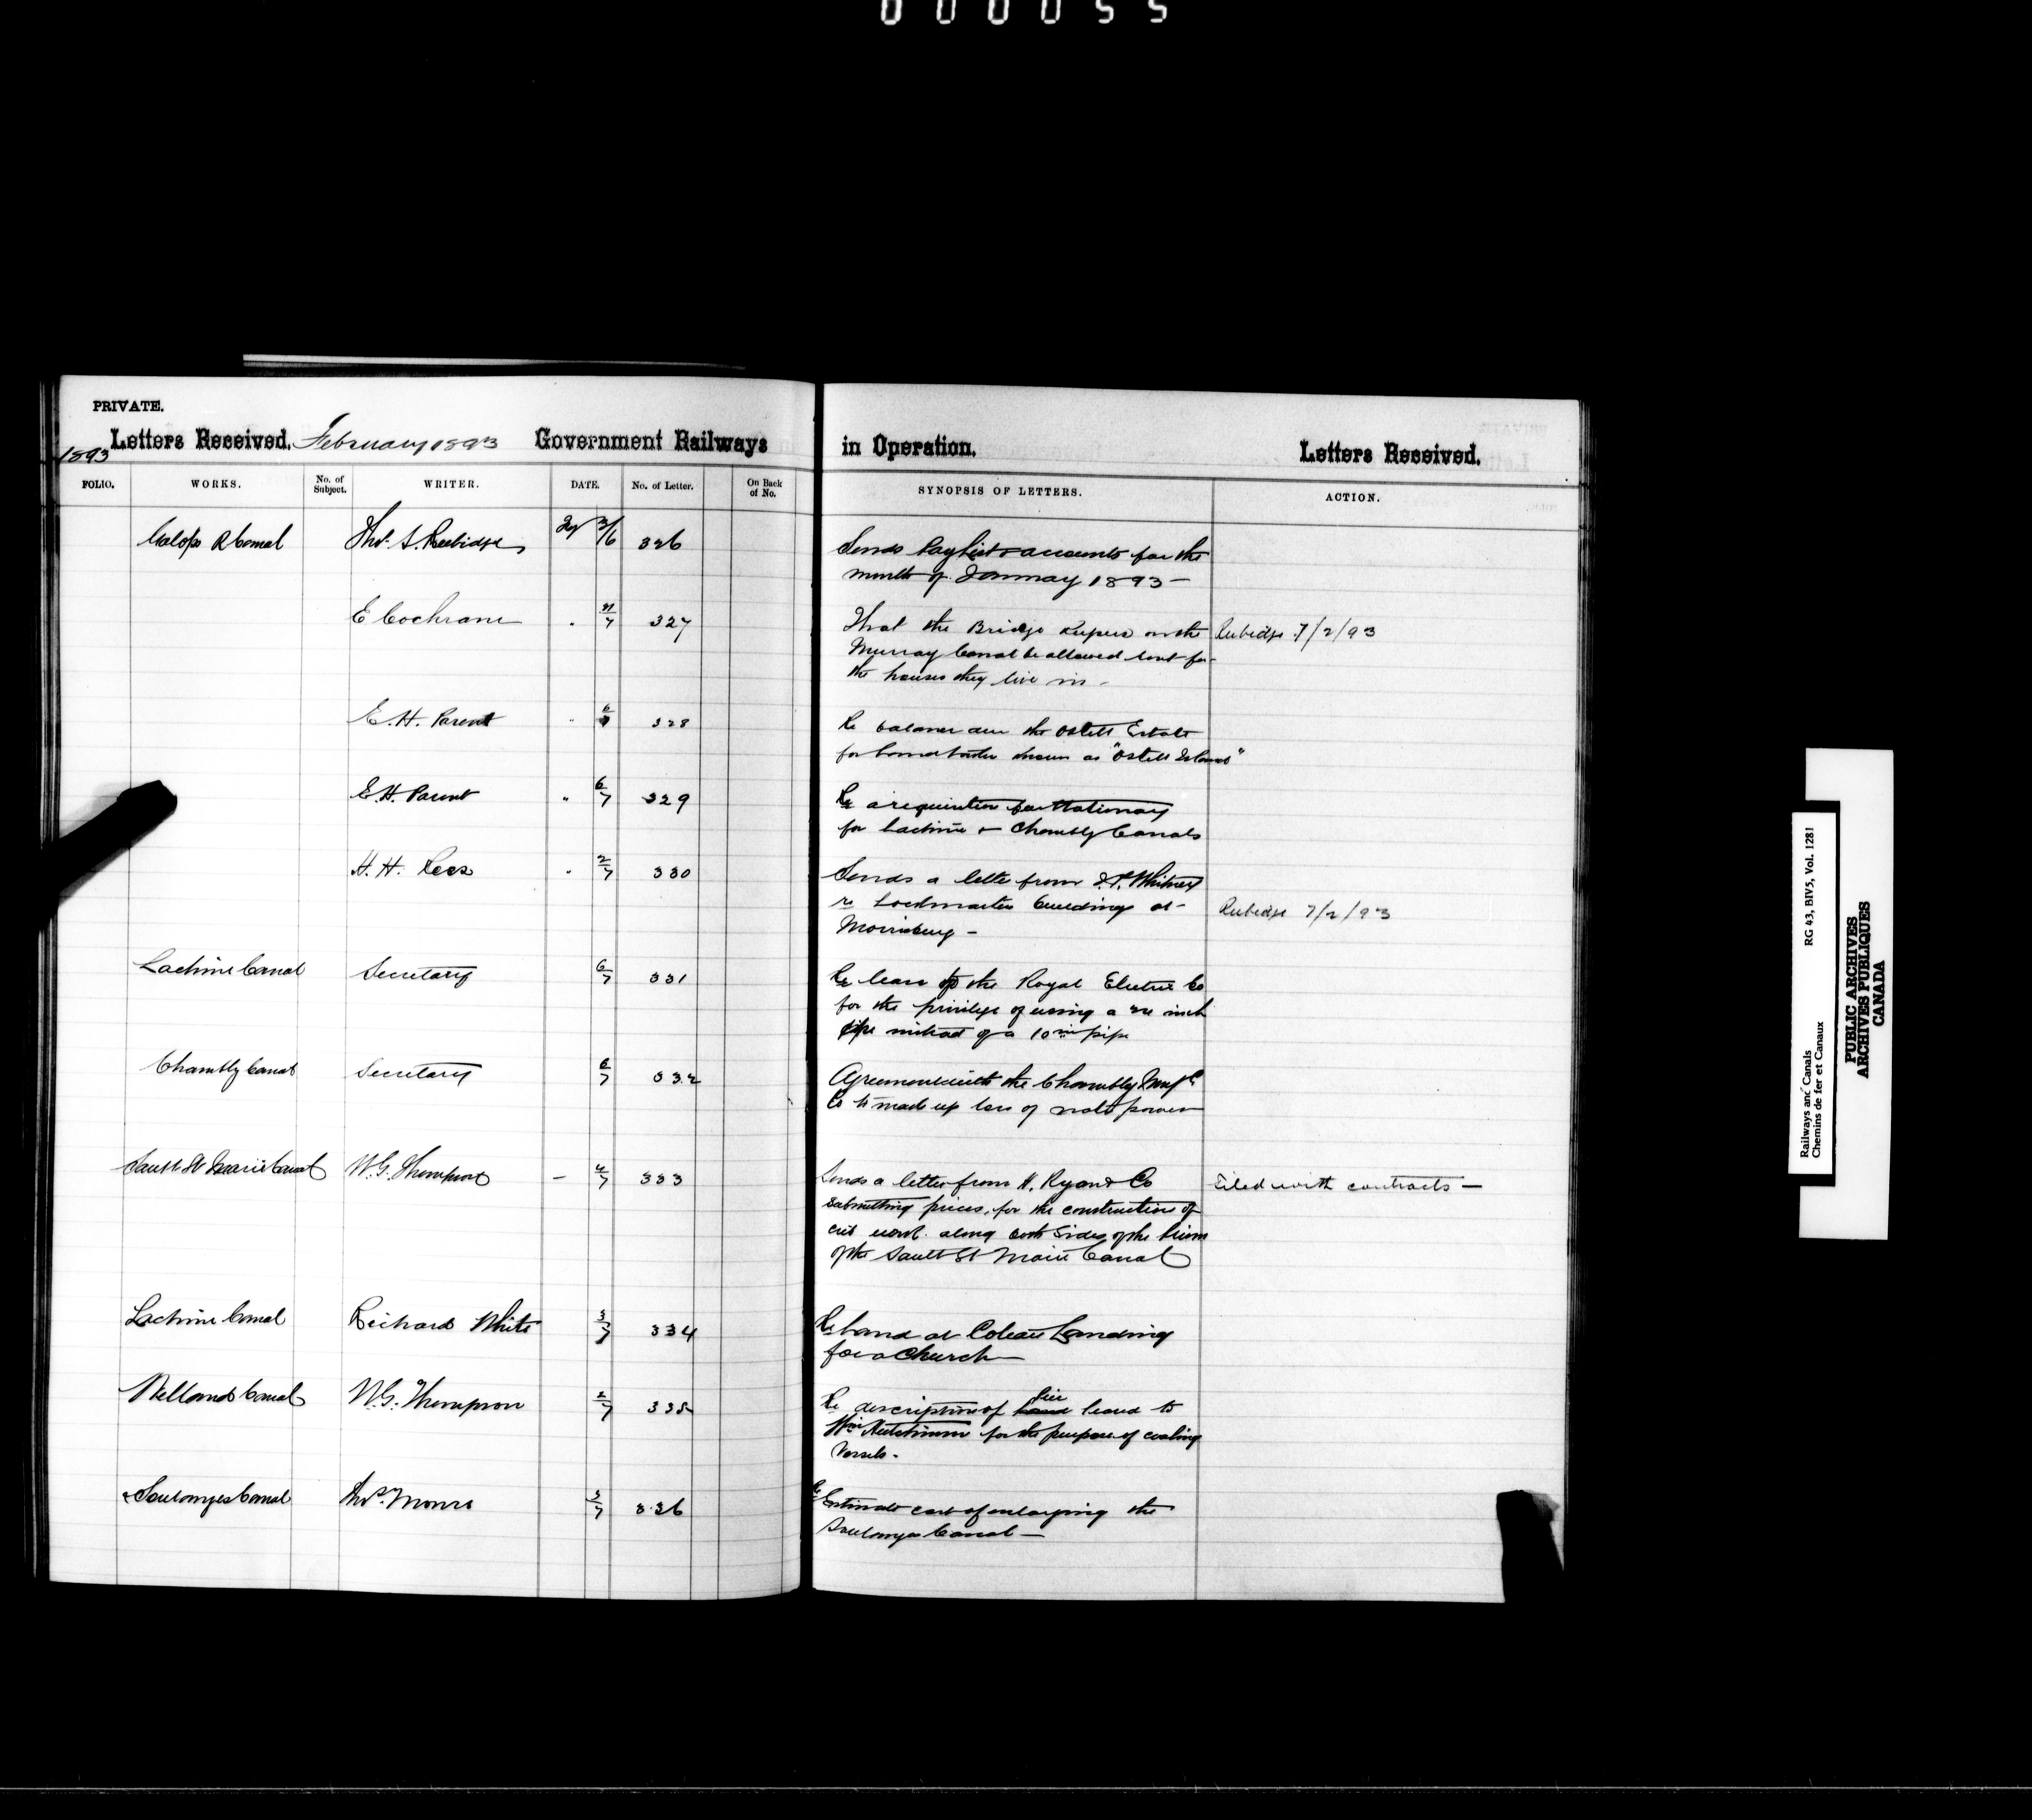 000055
PRIVATE.
Letters Received. February 1893 Government Railways in Operation. Letters Received.
1893
FOLIO. WORKS. No. of Subject. WRITER. DATE. No. of Letter. On Back of No. SYNOPSIS OF LETTERS. ACTION.
Galops R Canal Thos. S. Rubidge Fey 3/6 326 Sends Pay list & accounts for the
month of January 1893 —
E Cochrane " 4/7 327 That the Bridge Keepers on the Rubidge 7/2/93
Murray Canal be allowed rent for
the houses they live in -
E. H. Parent " 6/7 328 Re balance due the Ostell Estate
for land known as "Ostell Island"
E. H. Parent " 6/7 329 Re a requisition for Stationary
for Lachine & Chambly Canals
H. H. Ross " 2/7 330 Sends a letter from Whitney
re Lockmaster buildings at Rubidge 7/2/93
Morrisburg -
Lachine Canal Secretary 6/7 331 Re lease to the Royal Electric Co
for the privilege of using a inch
pipe instead of a 10 in pipe
Chambly Canal Secretary 6/7 332 Agreement with the Chambly Mnfg
Co to made up loss of water power
Sault St Marie Canal W. G. Thompson — 4/7 333 Sends a letter from H. Ryan & Co Filed with contracts —
submitting prices, for the construction of
crib work along both sides of the
of the Sault St Marie Canal
Lachine Canal Richard White 3/7 334 Re land at Coteau Landing
for a Church —
Welland Canal W. G. Thompson 2/7 335 Re description of pier leased to
Wm Hutchinson for the purpose of coaling
Vessels -
Soulanges Canal Thos. Monro 3/7 336 Re Estimate cost of enlarging the
Soulanges Canal —
Railways and Canals RG 43, BIV5, Vol. 1281
Chemins de fer et Canaux
PUBLIC ARCHIVES
ARCHIVES PUBLIQUES
CANADA